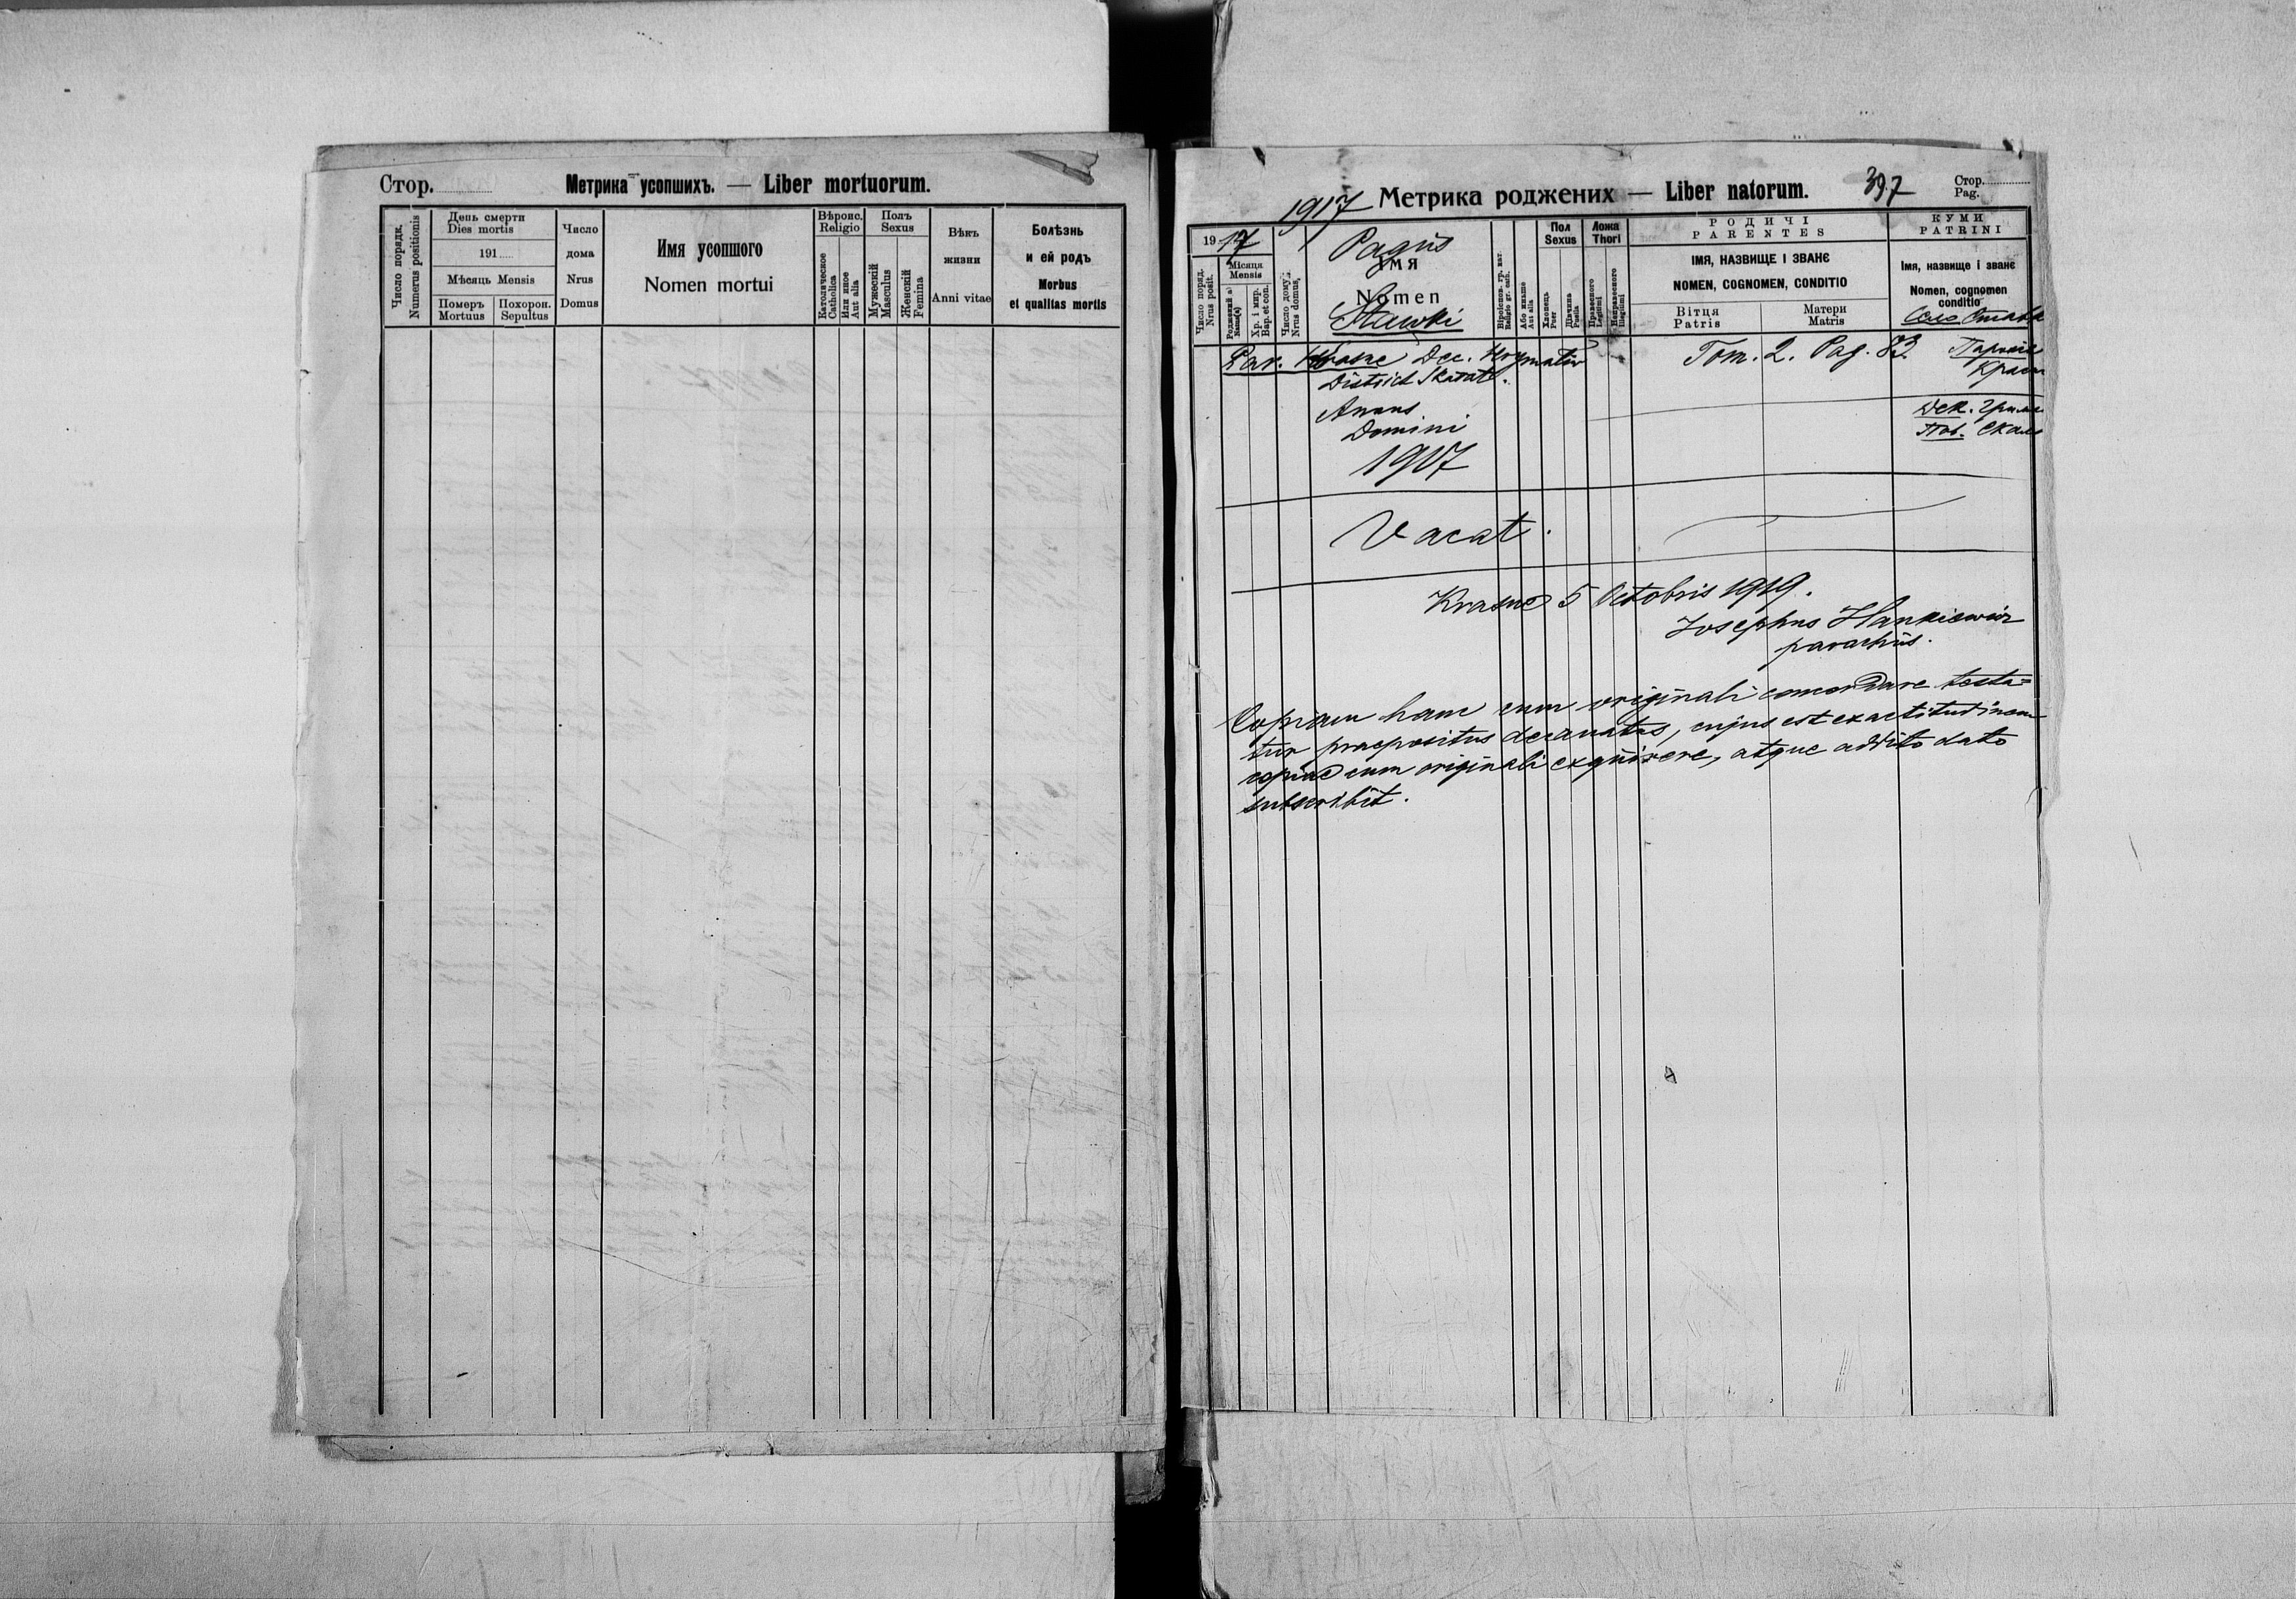 Стор.
Метрика усопшихъ. — Liber mortuorum.
Число порядк.
Numerus positionis
День смерти
Dies mortis
191
Мѣсяць Mensis
Померъ
Mortuus
Похорон.
Sepultus
Число
дома
Nrus
Domus
Имя усопшого
Nomen mortui
Вѣроис.
Religio
Католическое
Catholica
Или иное
Aut alia
Полъ
Sexus
Мужескій
Masculus
Женскій
Femina
Вѣкъ
жизни
Anni vitae
Болѣзнь
и ей родъ
Morbus
et qualitas mortis
1917 Метрика роджених — Liber natorum.
397
Стор.
Pag.
1917
Число поряд.
Nrus posit.
Місяця
Mensis
Хр. і мир.
Bap. et con.
Число дому.
Nrus domus
Pagus
ІМЯ
Nomen
Stawki
Віроіспов. гр. кат.
Religio gr. cath.
Або иньше
Aut alia
Пол
Sexus
Хлопець
Puer
Дівчина
Puella
Ложа
Thori
Правесного
Legitimi
Неправесного
Illegitimi
РОДИЧІ
PARENTES
ІМЯ, НАЗВИЩЕ І ЗВАНЄ
NOMEN, COGNOMEN, CONDITIO
Вітця
Patris
Матери
Matris
КУМИ
PATRINI
Імя, назвище і званє
Nomen, cognomen
conditio
Село Ставк
Par. Krasne Dec. Hrymaliv Tom. 2. Pag. 83
District Skalat.
Парохія
Красн
Annus
Domini
1917
Дек. Грима
Пов. Скала
Vacat.
Krasne 5 Octobris 1919.
Josephus Hankiewicz
parochus.
Copiam hanc cum originali concordare testa=
tur praepositus decanatus, cujus est exactitudinem
copiae cum originali exquirere, atque addito dato
subscribit.